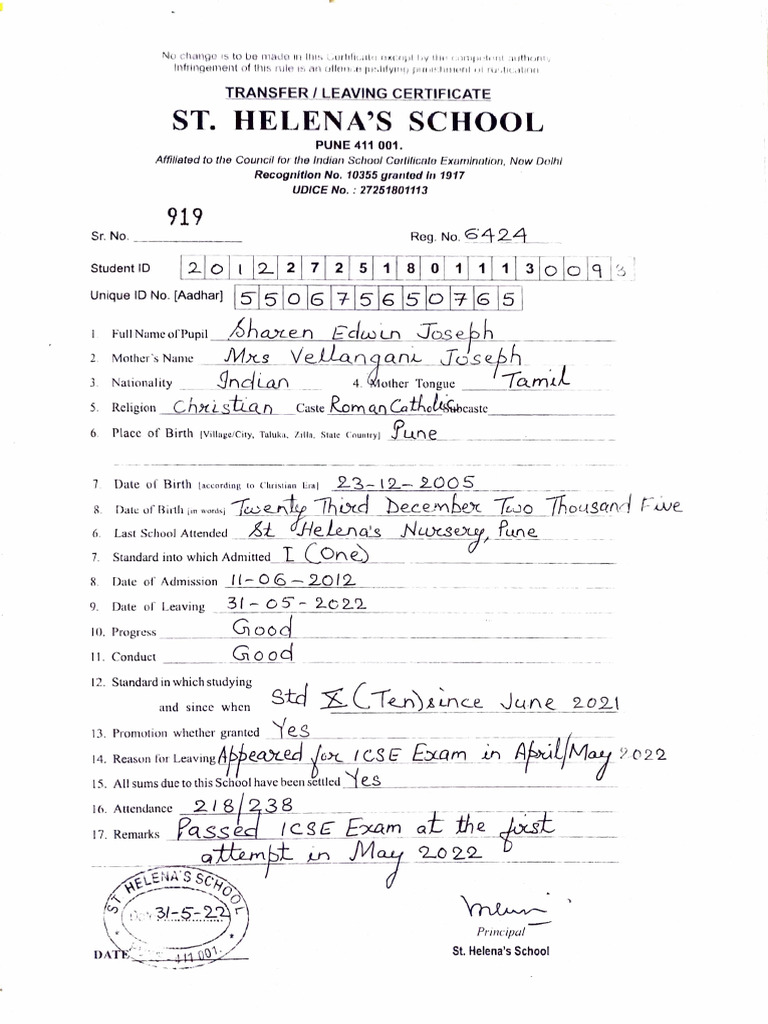 No change is to be made in this Certificate except by the competent authority
Infringement of this rule is an offence justifying punishment of rustication
TRANSFER / LEAVING CERTIFICATE
ST. HELENA'S SCHOOL
PUNE 411 001.
Affiliated to the Council for the Indian School Certificate Examination, New Delhi
Recognition No. 10355 granted in 1917
UDICE No. : 27251801113
Sr. No. 919 Reg. No. 6424
Student ID 2012272518011130093
Unique ID No. [Aadhar] 550675650765
1. Full Name of Pupil Sharen Edwin Joseph
2. Mother's Name Mrs Vellangani Joseph
3. Nationality Indian 4. Mother Tongue Tamil
5. Religion Christian Caste Roman Catholic Subcaste
6. Place of Birth [Village/City, Taluka, Zilla, State Country] Pune
7. Date of Birth [according to Christian Era] 23-12-2005
8. Date of Birth [in words] Twenty Third December Two Thousand Five
6. Last School Attended St Helena's Nursery, Pune
7. Standard into which Admitted I (One)
8. Date of Admission 11-06-2012
9. Date of Leaving 31-05-2022
10. Progress Good
11. Conduct Good
12. Standard in which studying
and since when Std X (Ten) since June 2021
13. Promotion whether granted Yes
14. Reason for Leaving Appeared for ICSE Exam in April/May 2022
15. All sums due to this School have been settled Yes
16. Attendance 218/238
17. Remarks Passed ICSE Exam at the first
attempt in May 2022
ST HELENA'S SCHOOL
31-5-22
411 001.
DATE
Principal
St. Helena's School